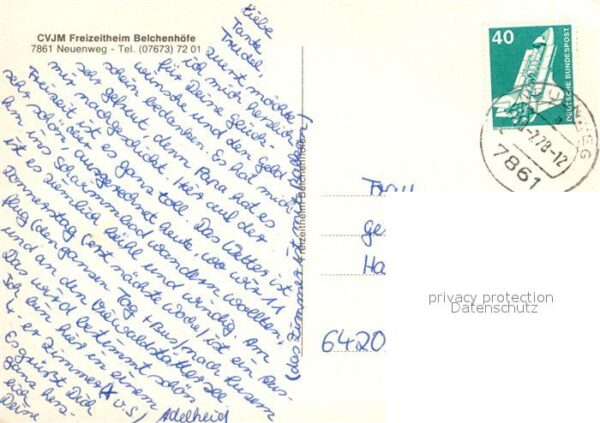 CVJM Freizeitheim Belchenhöfe
7861 Neuenweg - Tel. (07673) 72 01
Liebe
Tante
Trudel,
zuerst möchte
ich mich herzlich
für Deine Glück-
wünsche und den Geld-
schein bedanken. Es hat mich
sehr gefreut, denn Papa hat es
mir nachgeschickt. Hier auf der
Freizeit ist es ganz toll. Das Wetter ist
sehr schön, ausgerechnet heute, wo wir 11
km ins Schwimmbad wandern wollten,
ist es ziemlich kühl und windig. Am
Donnerstag (erst nächste Woche) ist ein Aus-
flug (den ganzen Tag + Bus) nach Luzern
und an den Vierwaldstättersee.
Das wird bestimmt schön.
Ich bin hier in einem
4-er Zimmer
(das Zimmer ist mit
Es grüßt Dich
ganz herz-
lich
Deine
Adelheid
Freizeitheim Belchenhöfe
40
DEUTSCHE BUNDESPOST
7.78-12
7861
Frau
ge
Ha
6420
privacy protection
Datenschutz